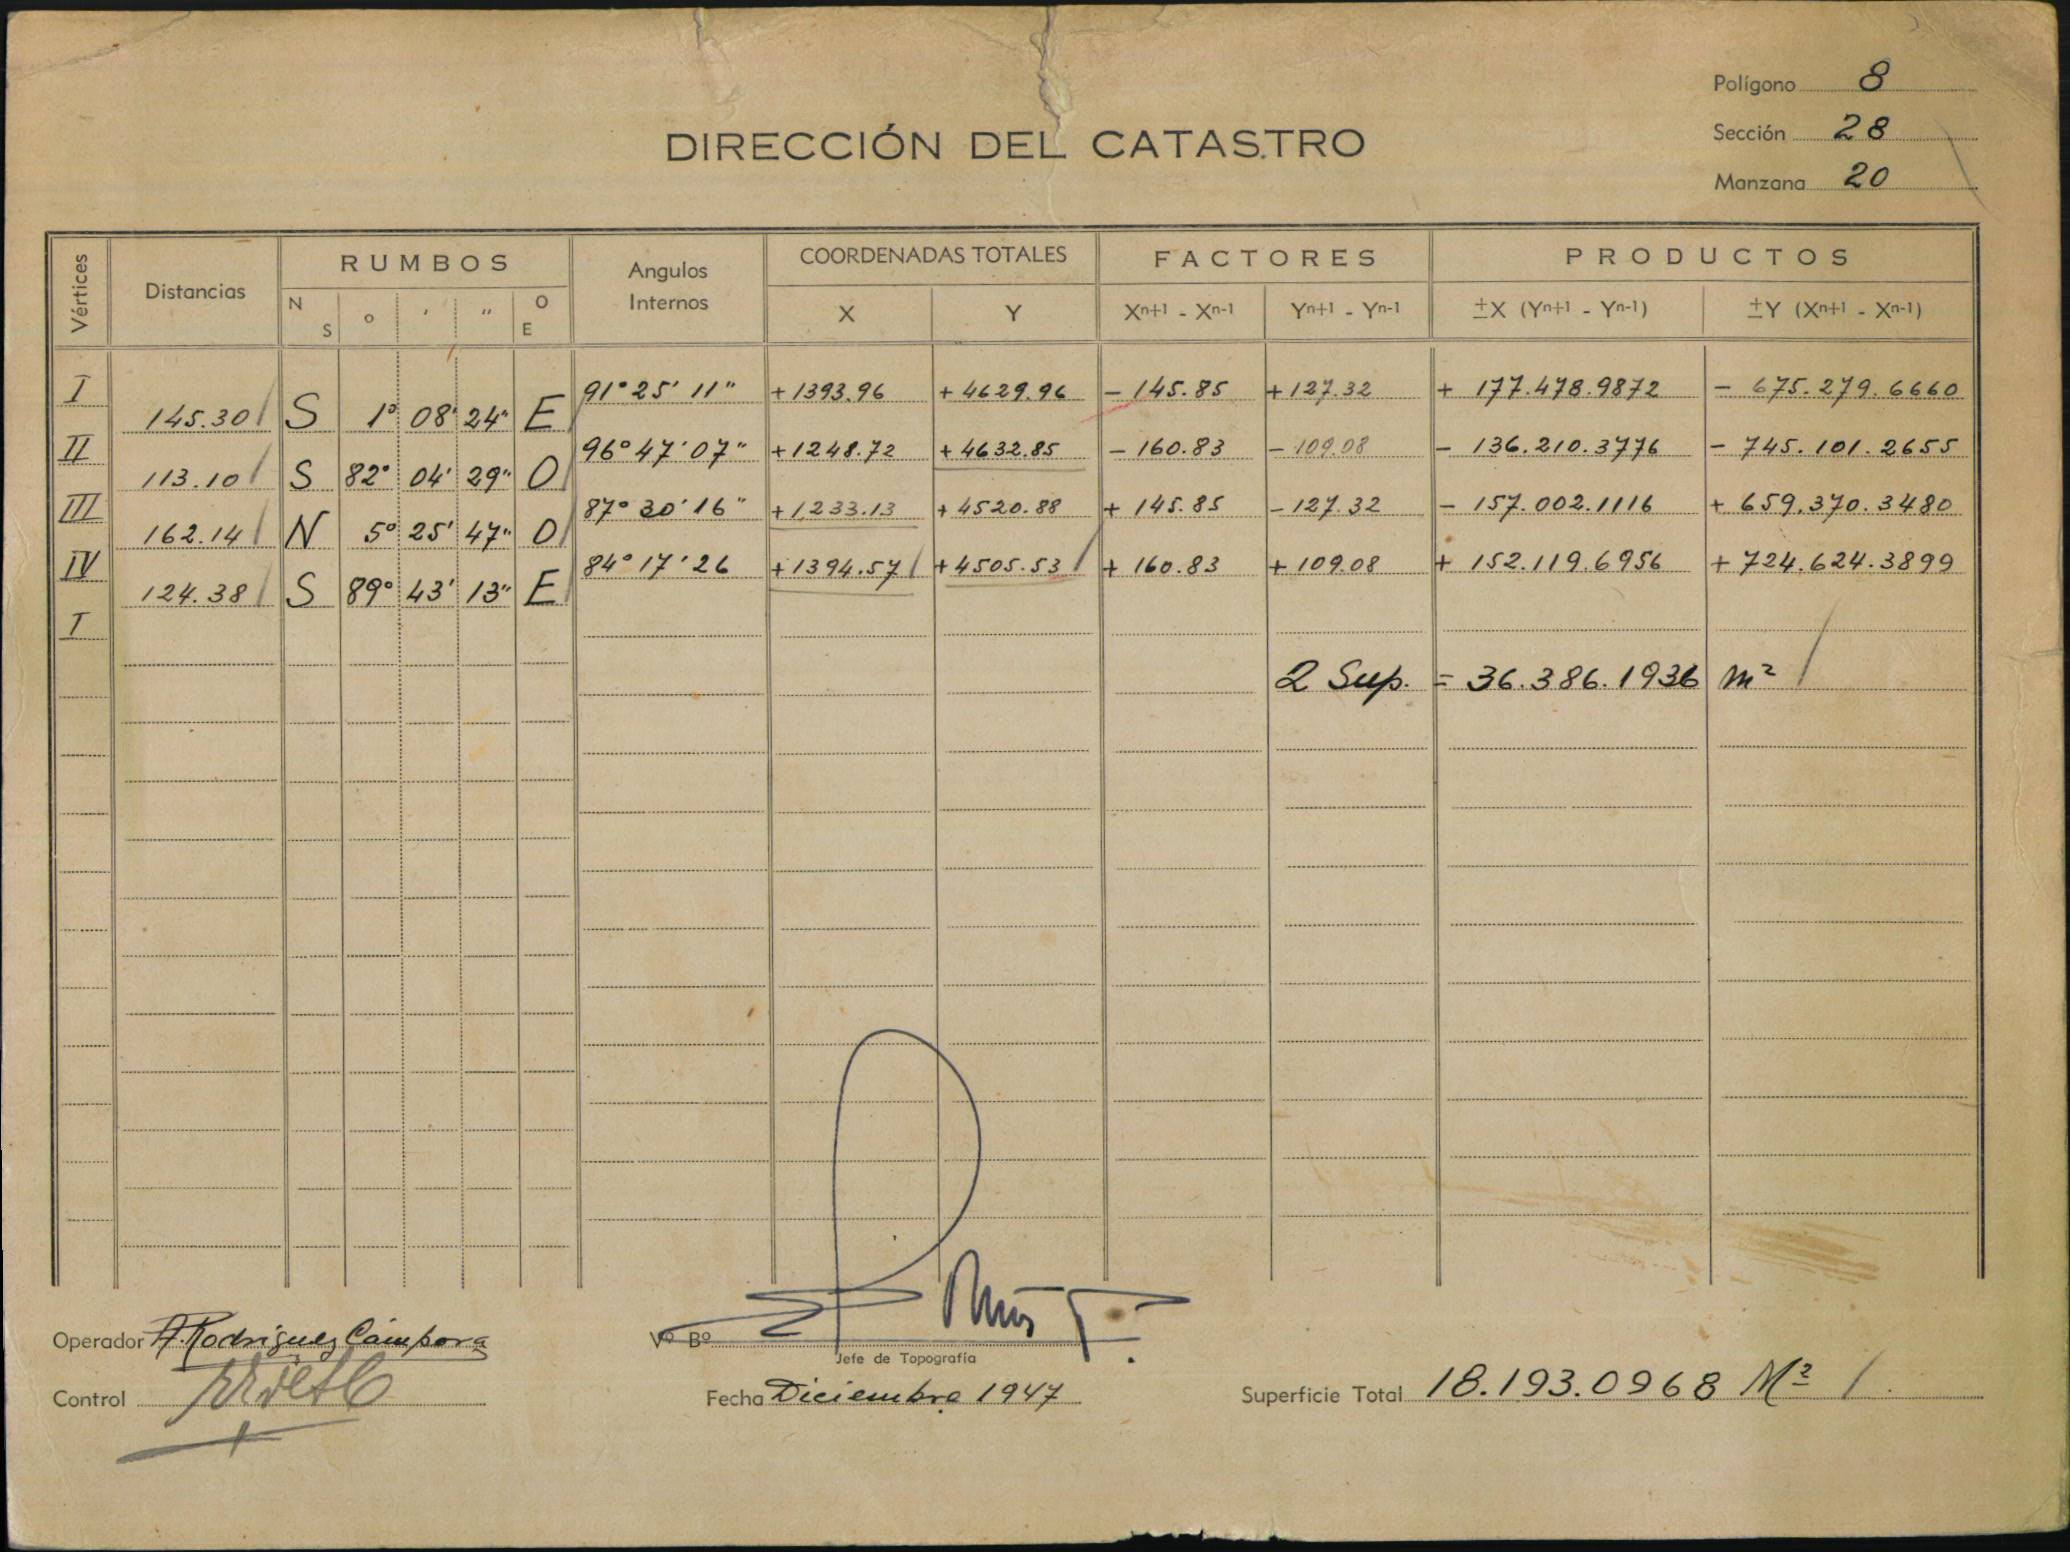 Polígono 8
DIRECCIÓN DEL CATASTRO
Sección 28
Manzana 20
Vértices Distancias RUMBOS Angulos Internos COORDENADAS TOTALES FACTORES PRODUCTOS
N S o ′ ″ O E X Y Xn+1 - Xn-1 Yn+1 - Yn-1 ±X (Yn+1 - Yn-1) ±Y (Xn+1 - Xn-1)
I 91° 25' 11" +1393.96 +4629.96 -145.85 +127.32 + 177.478.9872 - 675.279.6660
145.30 S 1° 08' 24" E
II 96° 47' 07" +1248.72 +4632.85 -160.83 -109.08 - 136.210.3776 - 745.101.2655
113.10 S 82° 04' 29" O
III 87° 30' 16" +1233.13 +4520.88 +145.85 -127.32 - 157.002.1116 + 659.370.3480
162.14 N 5° 25' 47" O
IV 84° 17' 26 +1394.57 +4505.53 +160.83 +109.08 + 152.119.6956 + 724.624.3899
124.38 S 89° 43' 13" E
I
2 Sup. = 36.386.1936 m²
Operador A. Rodriguez Cámpora
Vº Bº
Jefe de Topografía
Control
Fecha Diciembre 1947
Superficie Total 18.193.0968 M²